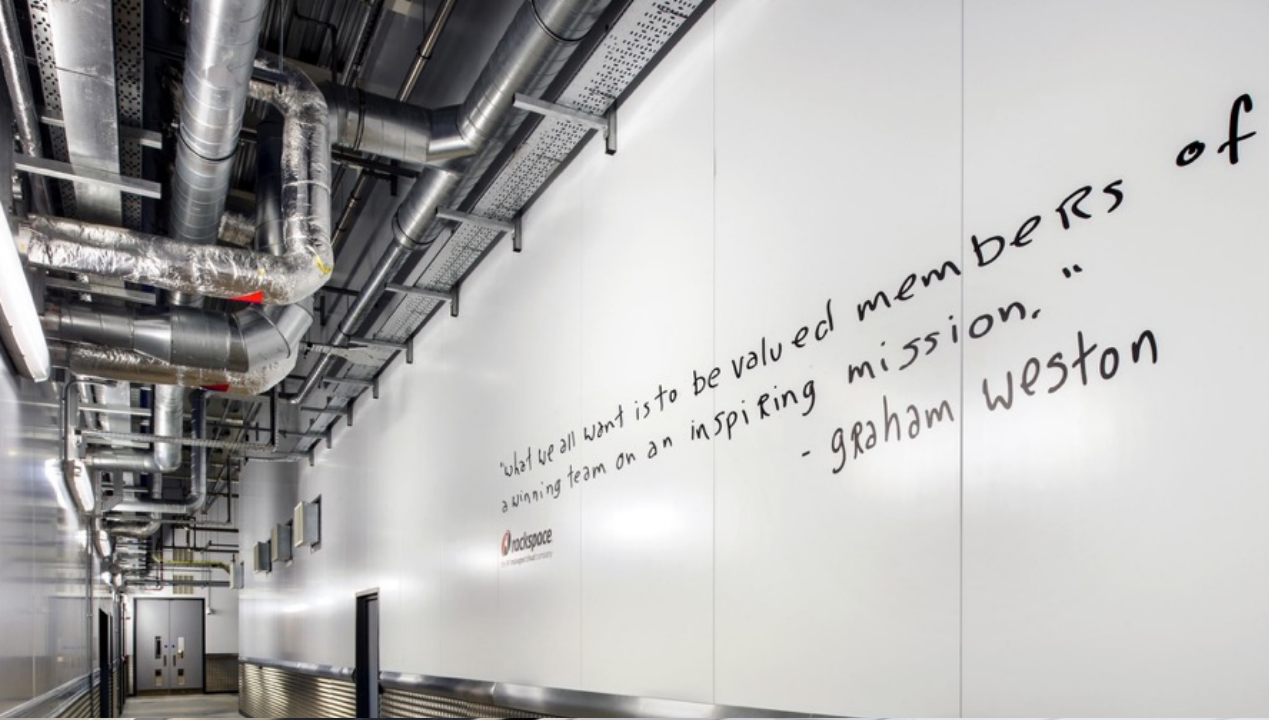 "what we all want is to be valued members of
a winning team on an inspiring mission."
- graham weston
rackspace